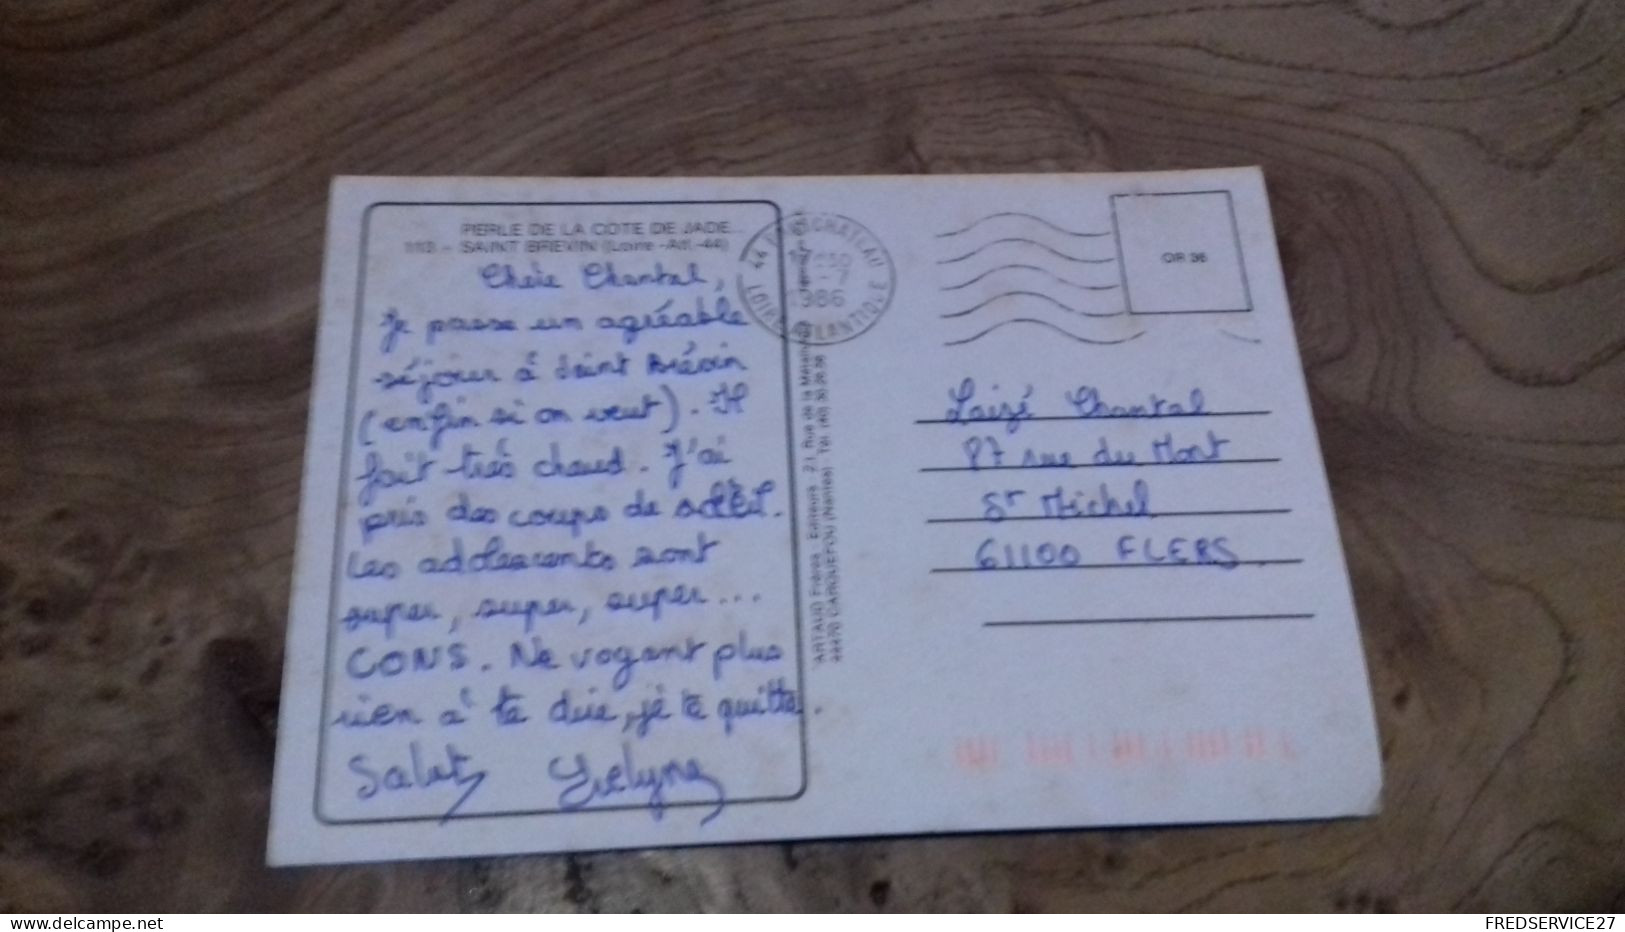 PERLE DE LA COTE DE JADE...
113 - SAINT BREVIN (Loire-Atl.-44)
Chère Chantal,
Je passe un agréable
séjour à Saint Brévin
(enfin si on veut). Il
fait très chaud. J'ai
pris des coups de soleil.
Les adolescents sont
super, super, super...
CONS. Ne voyant plus
rien à te dire, je te quitte.
Salut, Evelyne
ARTAUD Frères, Editeurs
44470 CARQUEFOU (Nantes)
44
CHATEAU
1986
LOIRE ATLANTIQUE
OR 36
Laizé Chantal
87 rue du Mont
St Michel
61100 FLERS.
https://www.delcampe.net
FREDSERVICE27